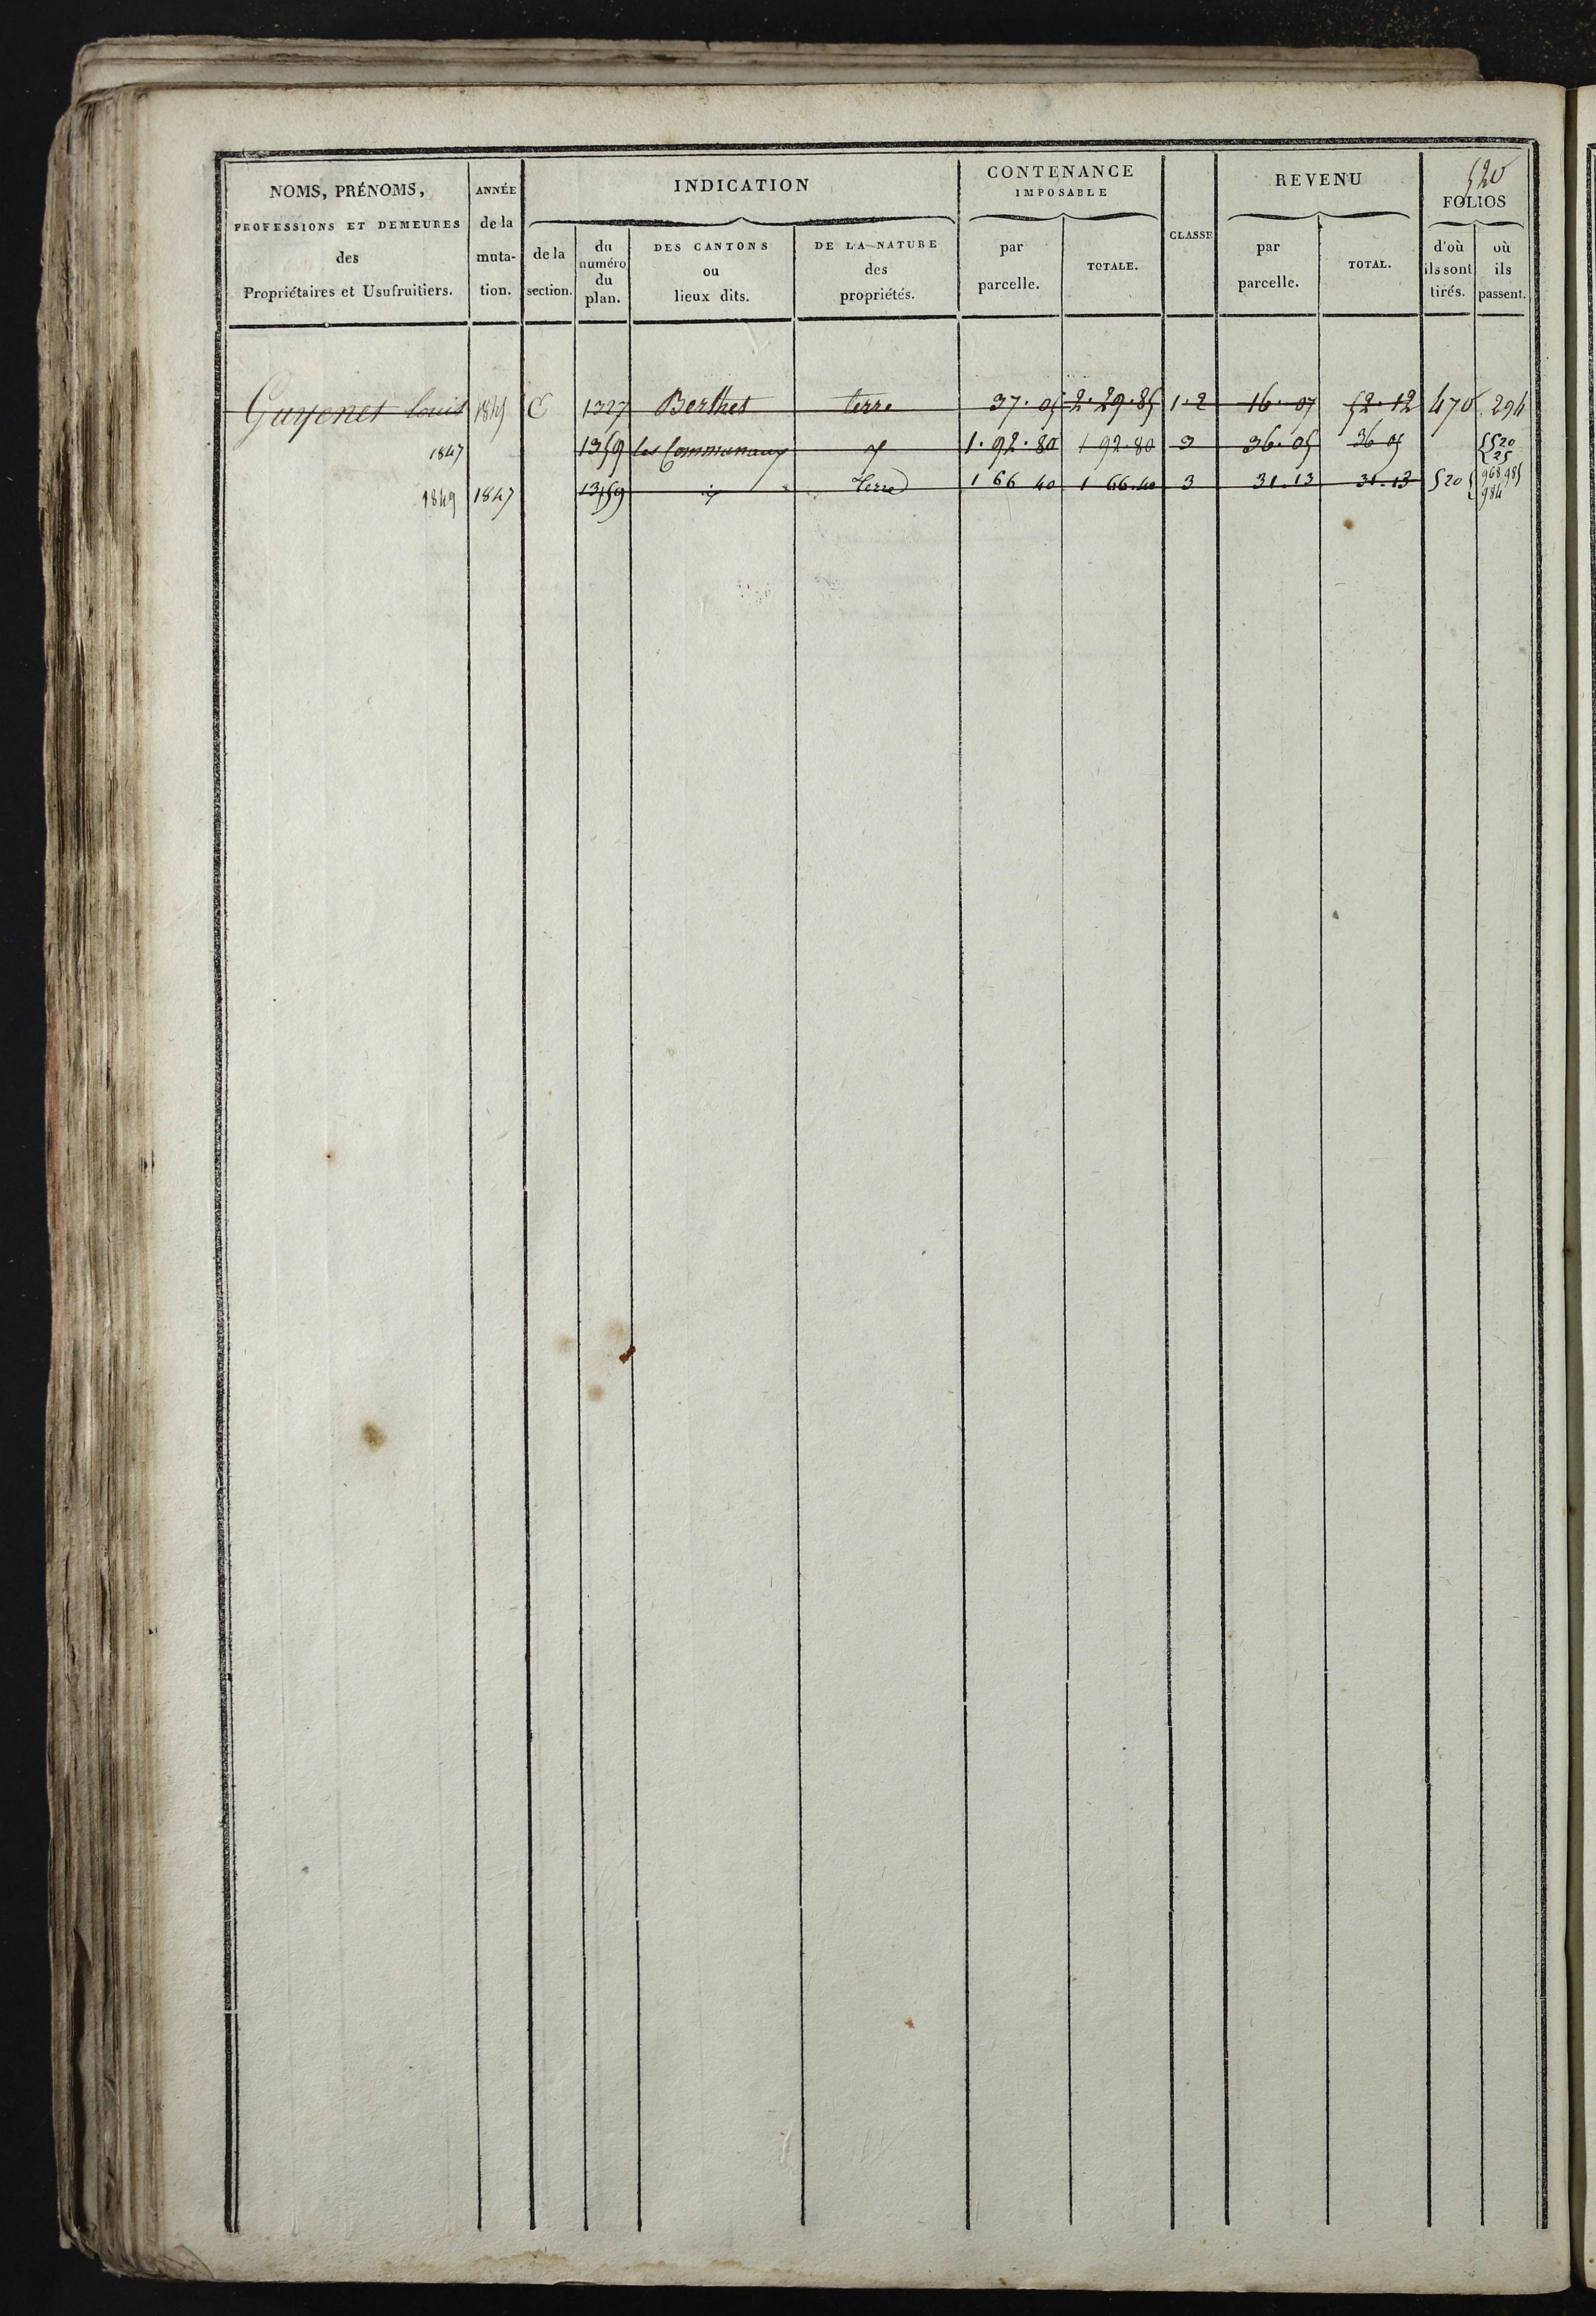 520
NOMS, PRÉNOMS, PROFESSIONS ET DEMEURES des Propriétaires et Usufruitiers.
ANNÉE de la muta- tion.
INDICATION
de la section.
du numéro du plan.
DES CANTONS ou lieux dits.
DE LA NATURE des propriétés.
CONTENANCE IMPOSABLE
par parcelle.
TOTALE.
CLASSE
REVENU
par parcelle.
TOTAL.
FOLIOS
d'où ils sont tirés.
où ils passent.
Guyenet Louis 1845 C 1327 Berthet terre 37.05 2.29.85 1.2 16.07 52.12 470 294
1847 1359 les Communaux 1.92.80 1 92.80 3 36.05 36 05 520 25
1849 1847 1359 Terre 1 66 40 1 66.40 3 31.13 31.13 520 968 985 984